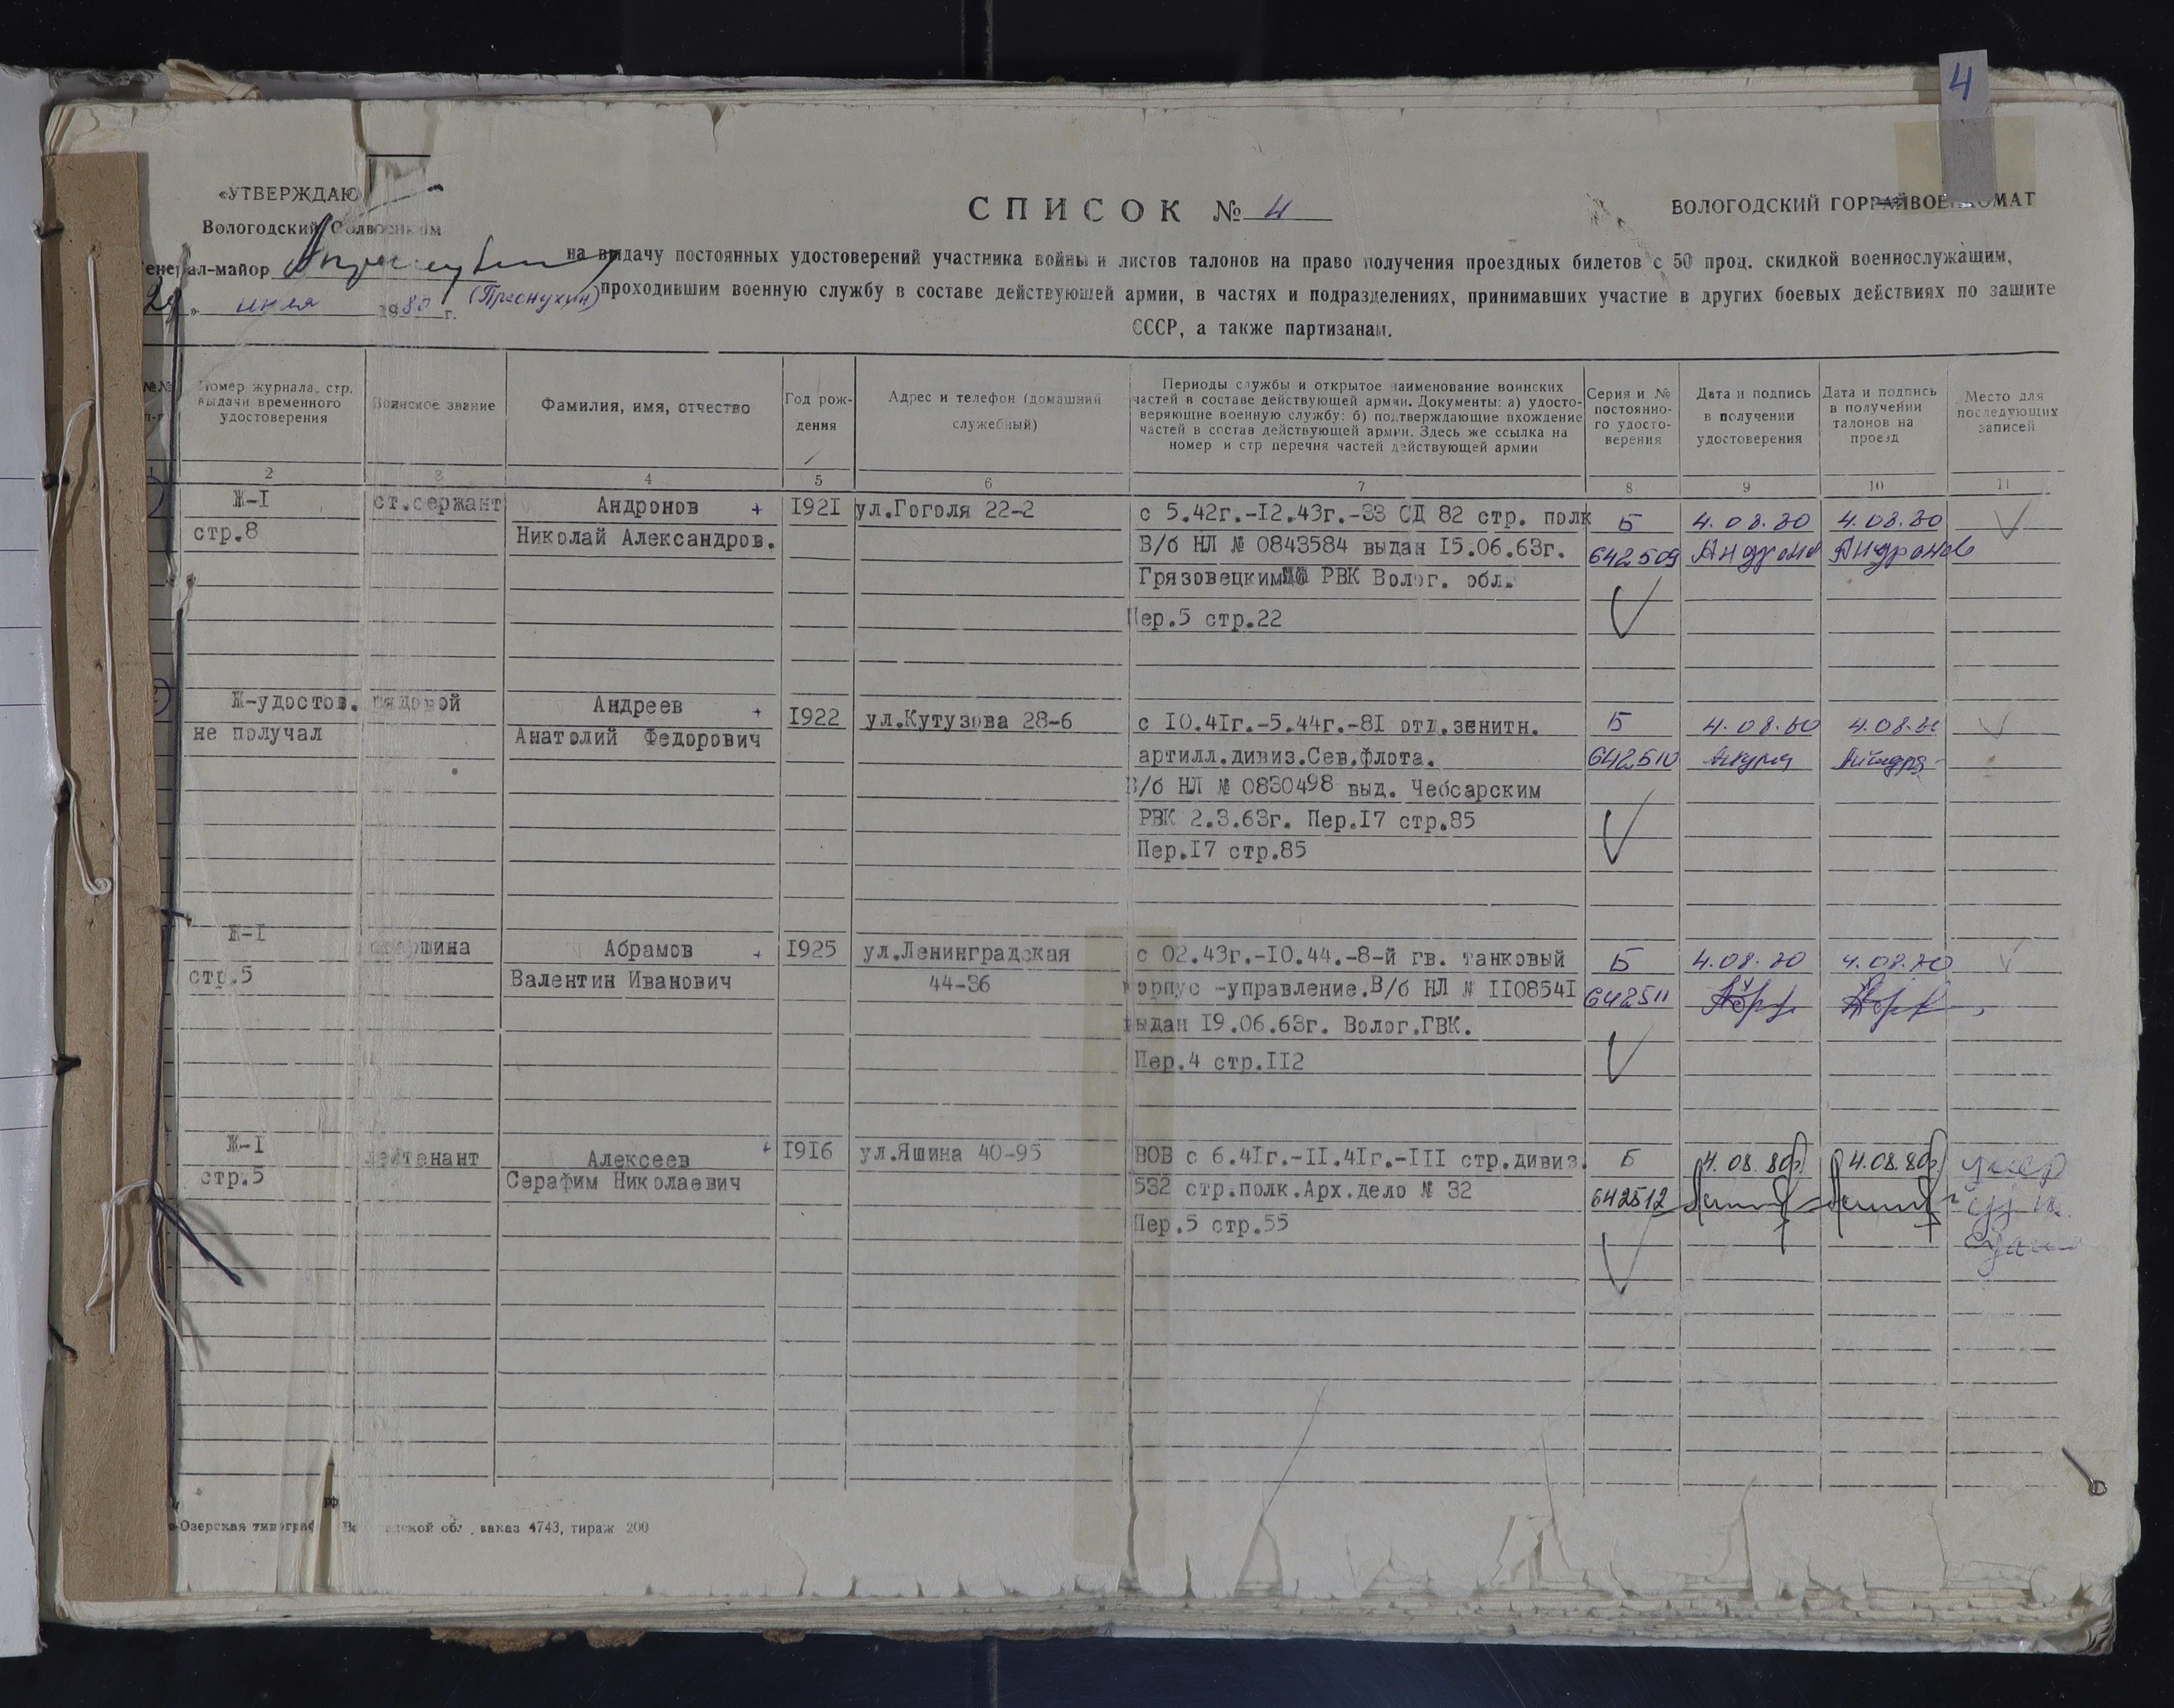 4
«УТВЕРЖДАЮ
Вологодский Облвоенком
Генерал-майор
29 " июля 1980 г. (Преснухин)
СПИСОК № 4
ВОЛОГОДСКИЙ ГОРРАЙВОЕНКОМАТ
на выдачу постоянных удостоверений участника войны и листов талонов на право получения проездных билетов с 50 проц. скидкой военнослужащим,
проходившим военную службу в составе действующей армии, в частях и подразделениях, принимавших участие в других боевых действиях по защите
СССР, а также партизанам.
№№ п-п
Номер журнала, стр. выдачи временного удостоверения
Воинское звание
Фамилия, имя, отчество
Год рож-
дения
Адрес и телефон (домашний
служебный)
Периоды службы и открытое наименование воинских
частей в составе действующей армии. Документы: а) удосто-
веряющие военную службу: б) подтверждающие вхождение
частей в состав действующей армии. Здесь же ссылка на
номер и стр перечня частей действующей армии
Серия и №
постоянно-
го удосто-
верения
Дата и подпись
в получении
удостоверения
Дата и подпись
в получении
талонов на
проезд
Место для
последующих
записей
1 2 3 4 5 6 7 8 9 10 11
Ж-I ст.сержант Андронов + I92I ул.Гоголя 22-2 с 5.42г.-I2.43г.-33 СД 82 стр. полк Б 4.08.80 4.08.80
стр.8 Николай Александров. В/б НЛ № 0843584 выдан I5.06.63г. 642509 Андронов Андронов
Грязовецким РВК Волог. обл.
Пер.5 стр.22
Ж-удостов. рядовой Андреев + I922 ул.Кутузова 28-6 с I0.4Iг.-5.44г.-8I отд.зенитн. Б 4.08.80 4.08.80
не получал Анатолий Федорович артилл.дивиз.Сев.флота. 642510
В/б НЛ № 0830498 выд. Чебсарским
РВК 2.3.63г. Пер.I7 стр.85
Пер.I7 стр.85
Ж-I старшина Абрамов + I925 ул.Ленинградская с 02.43г.-I0.44.-8-й гв. танковый Б 4.08.80 4.08.80
стр.5 Валентин Иванович 44-36 корпус -управление.В/б НЛ № II0854I 642511
выдан I9.06.63г. Волог.ГВК.
Пер.4 стр.II2
Ж-I лейтенант Алексеев + I9I6 ул.Яшина 40-95 ВОВ с 6.4Iг.-II.4Iг.-III стр.дивиз. Б 4.08.80 4.08.80 умер
стр.5 Серафим Николаевич 532 стр.полк.Арх.дело № 32 642512
Пер.5 стр.55
Озерская типограф Вологодской обл. заказ 4743, тираж 200